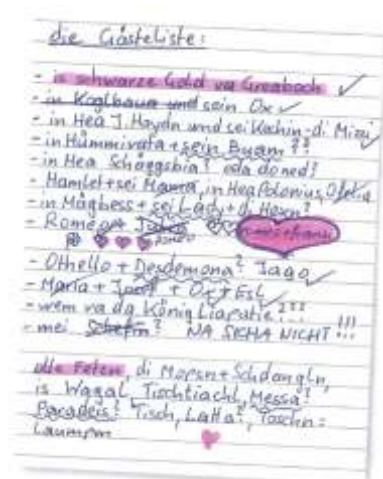 die Gästeliste:
- is schwarze Gold va Greabach ✓
- in Koglbaua und sein Ox ✓
- in Hea J. Haydn und sei Kechin-di Mizzi
- in Hümmivata + sein Buam ??
- in Hea Schäggsbia? oda doned?
- Hamlet + sei Mama, in Hea Polonius, Ofelia
- in Mägbess + sei Lady + di Hexn?
- Romeo + romeo + franzi
romeo
- Othello + Desdemona? Jago ✓
- Maria + Josef + Ox + Esl ✓
- wem va da König Liaputie? ? !!
- mei Schefin? NA SICHA NICHT !!!
olle Feten, di Mopsn + Schdangln,
is Wagal, Tischtiachl, Messa?
Paradeis? Tisch, Latta?, Toschn=
laumpm